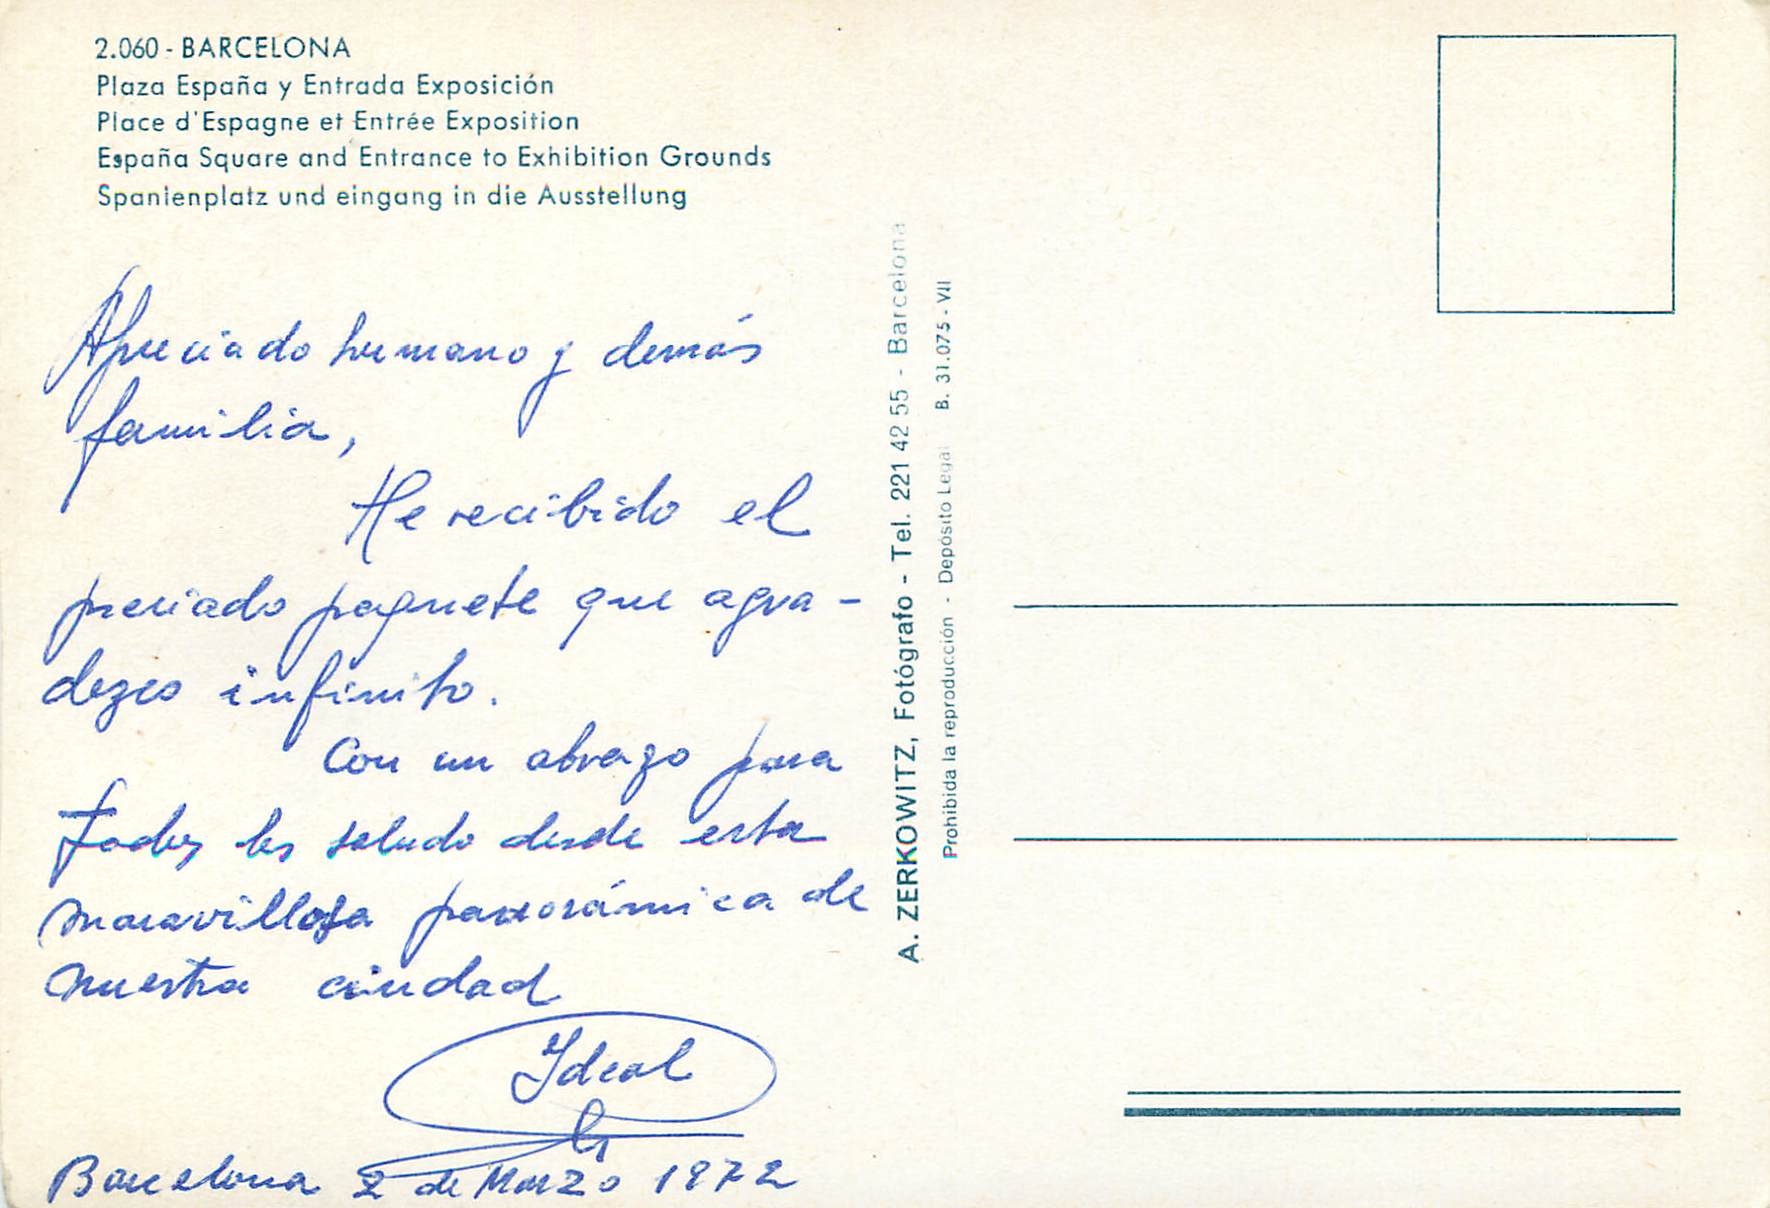 2.060 - BARCELONA
Plaza España y Entrada Exposición
Place d'Espagne et Entrée Exposition
España Square and Entrance to Exhibition Grounds
Spanienplatz und eingang in die Ausstellung
Apreciado hermano y demás
familia,
He recibido el
preciado paquete que agra-
dezco infinito.
Con un abrazo para
todos les saludo desde esta
maravillosa panorámica de
nuestra ciudad
Ideal
Barcelona 2 de Marzo 1972
A. ZERKOWITZ, Fotógrafo - Tel. 221 42 55 - Barcelona
Prohibida la reproducción - Depósito Legal B. 31.075 - VII